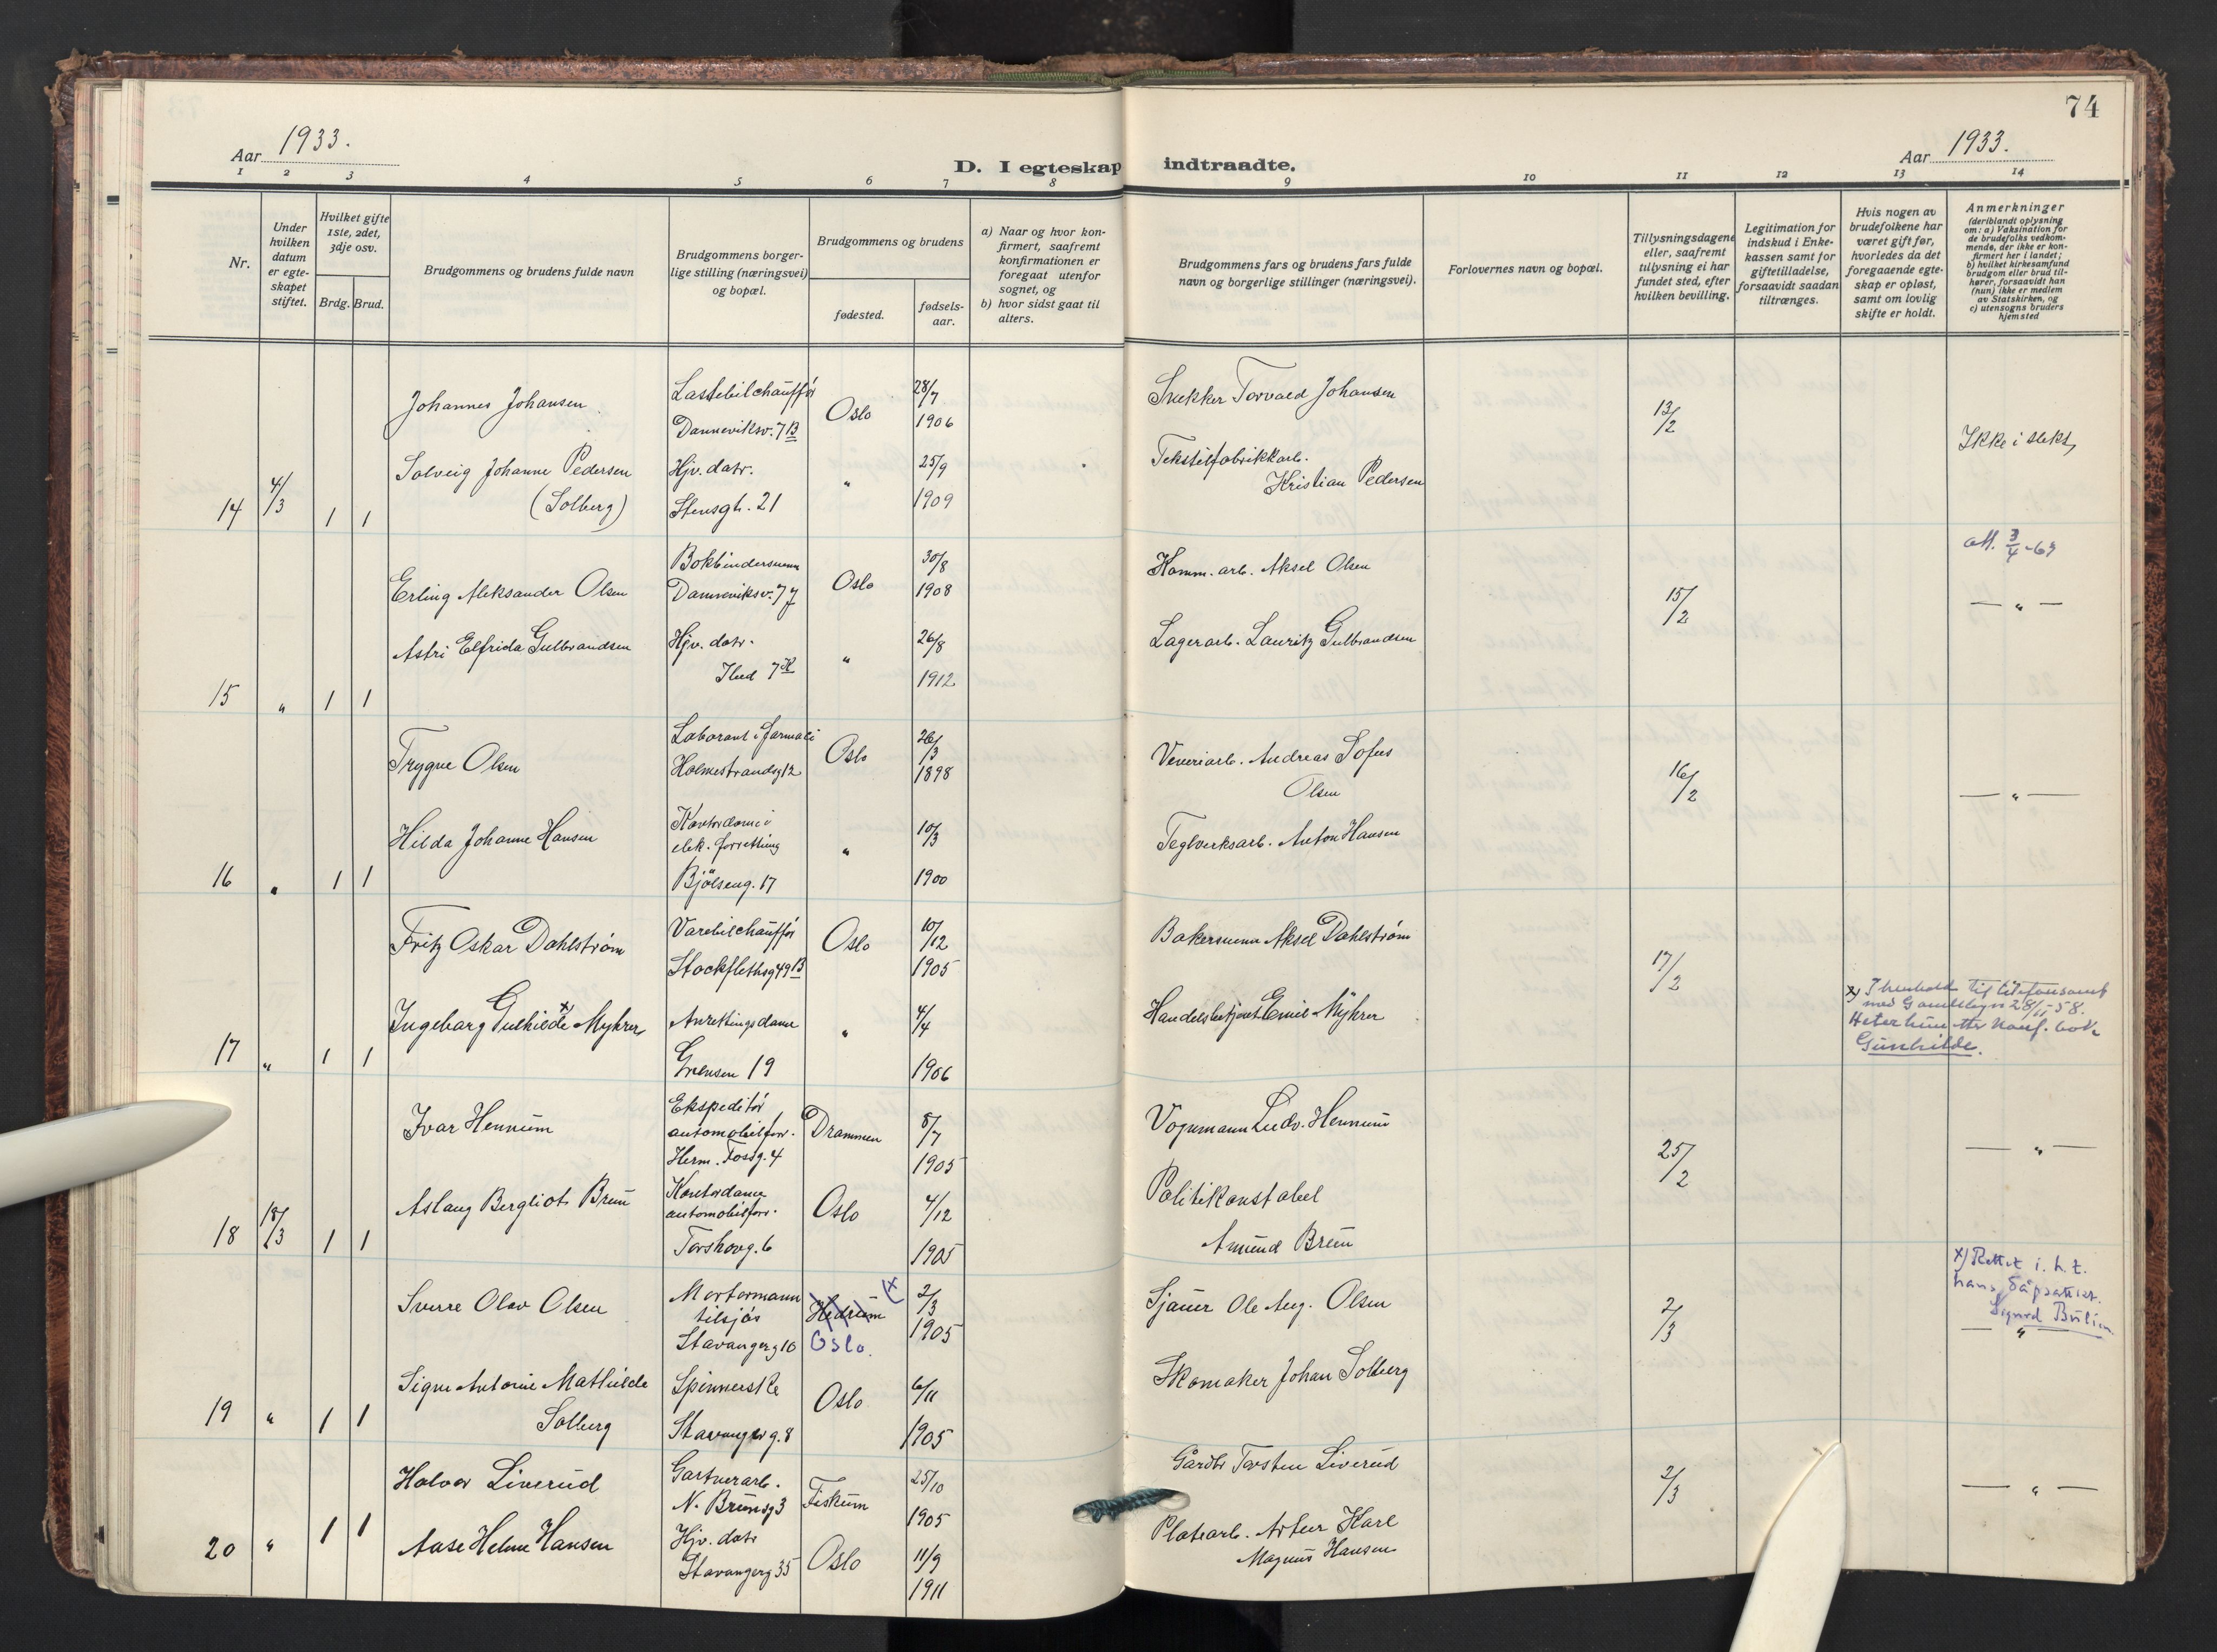 74
Aar 1933.
D. I egteskap indtraadte.
Aar 1933.
1 2 3 4 5 6 7 8 9 10 11 12 13 14
Nr.
Under
hvilken
datum
er egte-
skapet
stiftet.
Hvilket gifte
1ste, 2det,
3dje osv.
Brdg. Brud.
Brudgommens og brudens fulde navn
Brudgommens borger-
lige stilling (næringsvei)
og bopæl.
Brudgommens og brudens
fødested.
fødsels-
aar.
a) Naar og hvor kon-
firmert, saafremt
konfirmationen er
foregaat utenfor
sognet, og
b) hvor sidst gaat til
alters.
Brudgommens fars og brudens fars fulde
navn og borgerlige stillinger (næringsvei).
Forlovernes navn og bopæl.
Tillysningsdagene
eller, saafremt
tillysning ei har
fundet sted, efter
hvilken bevilling.
Legitimation for
indskud i Enke-
kassen samt for
giftetilladelse,
forsaavidt saadan
tiltrænges.
Hvis nogen av
brudefolkene har
været gift før,
hvorledes da det
foregaaende egte-
skap er opløst,
samt om lovlig
skifte er holdt.
Anmerkninger
(deriblandt oplysning
om: a) Vaksination for
de brudefolks vedkom-
mende, der ikke er kon-
firmert her i landet;
b) hvilket kirkesamfund
brudgom eller brud til-
hører, forsaavidt han
(hun) ikke er medlem
av Statskirken, og
c) utensogns bruders
hjemsted
14 4/3 1 1
Johannes Johansen
Lastebilchauffør
Danneviksv. 7 B
Oslo
28/7
1906
Snekker Torvald Johansen
13/2
Ikke i slekt
Solveig Johanne Pedersen
(Solberg)
Hjv. datr.
Stensgt. 21
"
25/9
1909
Tekstilfabrikkarb.
Kristian Pedersen
15 " 1 1
Erling Aleksander Olsen
Bokbindersvenn
Danneviksv. 7
Oslo
30/8
1908
Komm. arb. Aksel Olsen
15/2
att. 3/4-69
— " —
Astri Elfrida Gulbrandsen
Hjv. datr.
Ilud 7
"
26/8
1912
Lagerarb. Lauritz Gulbrandsen
16 " 1 1
Trygve Olsen
Laborant i farmasi
Holmestrandsg 12
Oslo
26/3
1898
Veveriarb. Andreas Sofus
Olsen
16/2
— " —
Hilda Johanne Hansen
Kontordame i
elek. forretning
Bjölseng. 17
"
10/3
1900
Teglverksarb. Anton Hansen
17 " 1 1
Fritz Oskar Dahlstrøm
Varebilchauffør
Stockflethsg 49 B
Oslo
10/12
1905
Bakersvenn Aksel Dahlstrøm
17/2
Ingeborg Gulhilde x) Myhrer
Anrettingsdame
Grensen 19
"
4/4
1906
Handelsbetjent Emil Myhrer
x) I henhold til telefonsamt
med Gamlebyen 28/11-58.
Heter hun etter konf. bok
Gunhilde.
18 18/3 1 1
Ivar Hennum
Ekspeditør
automobilforr.
Herm. Fossg. 4
Drammen
8/7
1905
Vognmann Ludv. Hennum
25/2
— " —
Aslaug Bergliot Bruu
Kontordame
automobilforr.
Torshovg. 6
Oslo
4/12
1905
Politikonstabel
Amund Bruu
19 " 1 1
Sverre Olav Olsen
Motormann
tilsjøs
Stavangerg 10
Hedrum x)
Oslo.
2/3
1905
Sjauer Ole Aug. Olsen
2/3
x) Rettet i. h. t.
hans dåpsattest.
Sigurd
— " —
Signe Antonie Mathilde
Solberg
Spinnerske
Stavangerg. 8
Oslo
6/11
1905
Skomaker Johan Solberg
20 " 1 1
Halvor Liverud
Gartnerarb.
N. Brunsg 3
Fiskum
25/10
1905
Gårdbr Torsten Liverud
2/3
— " —
Aase Helene Hansen
Hjv. datr
Stavangerg 35
Oslo
11/9
1911
Platearb. Artur Karl
Magnus Hansen